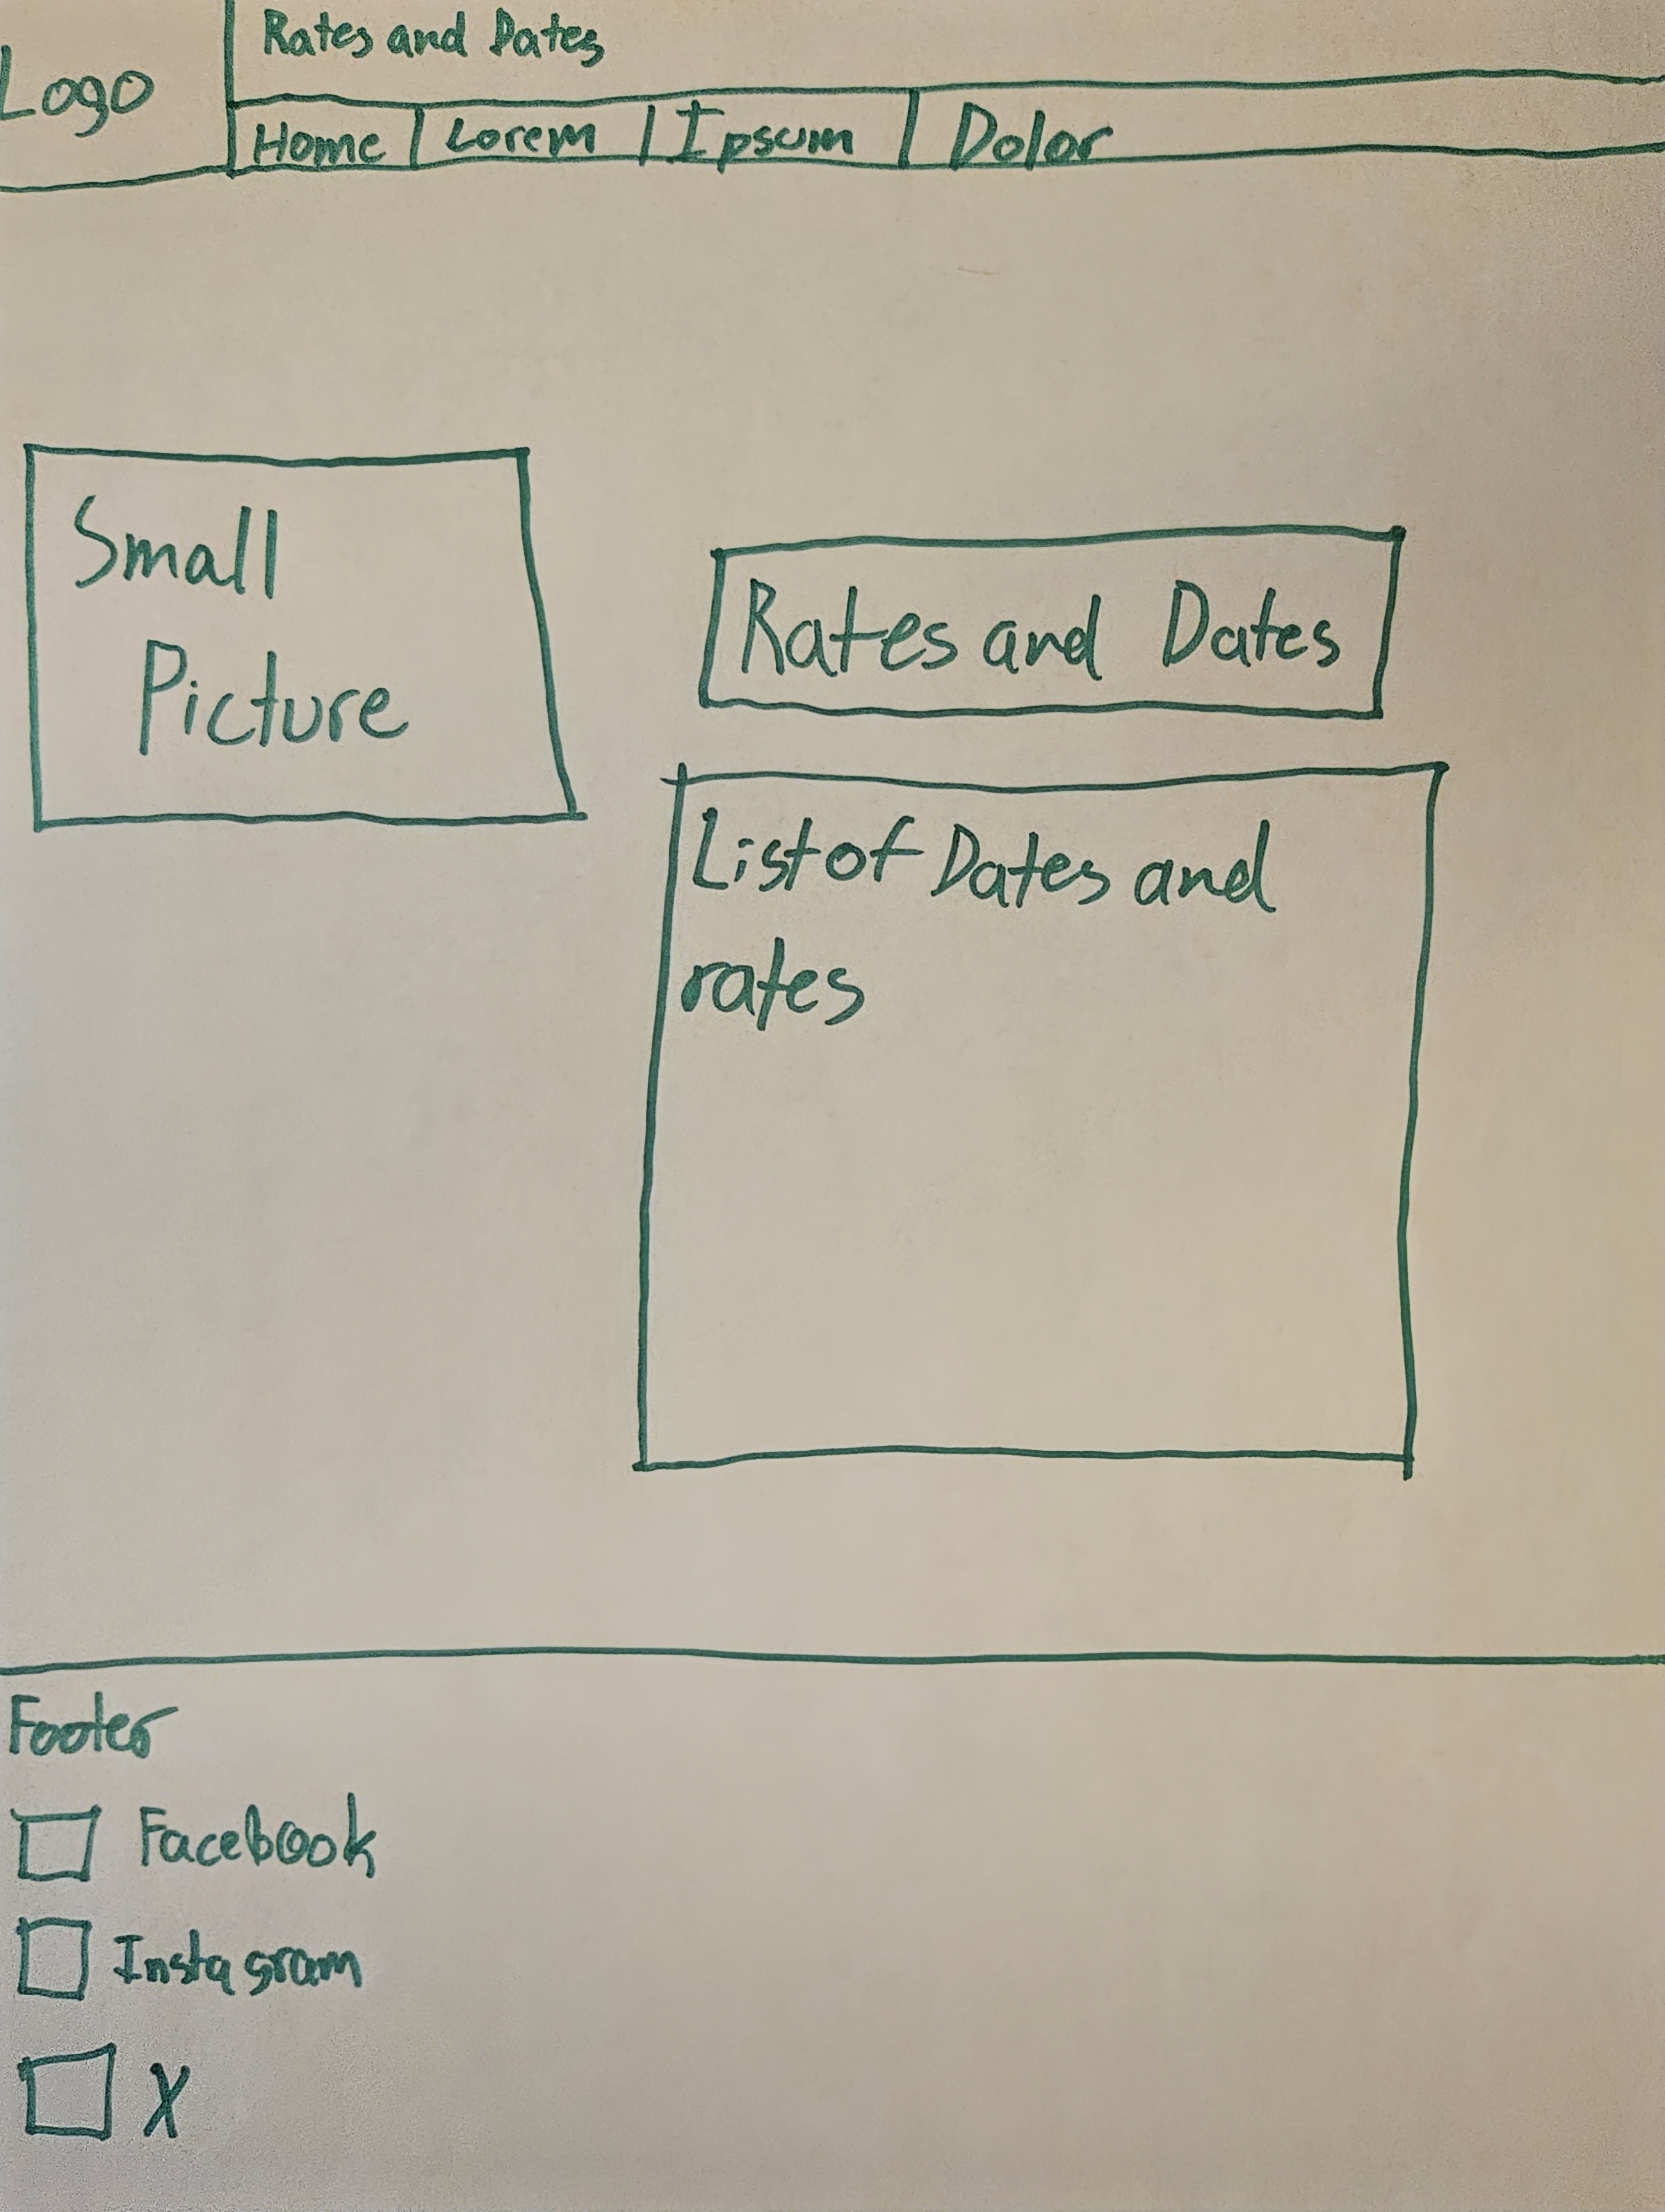 Logo
Rates and Dates
Home | Lorem | Ipsum | Dolor
Small
Picture
Rates and Dates
List of Dates and
rates
Footer
Facebook
Instagram
X